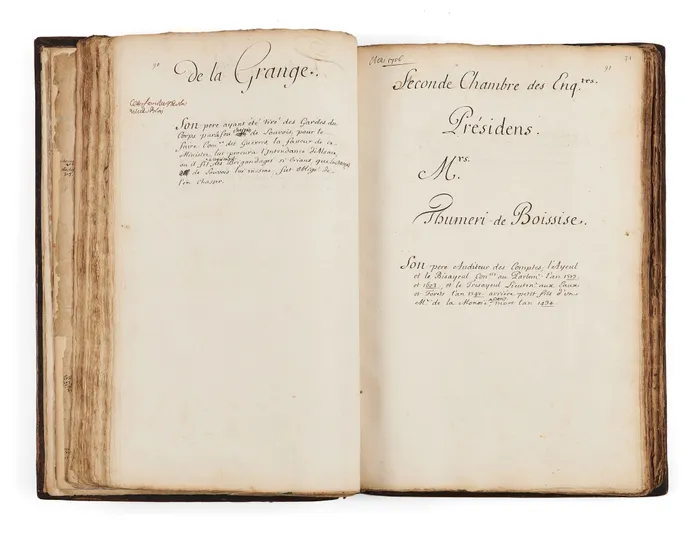 de la Grange.
Son pere ayant été tiré des Gardes du
Corps par feu de Louvois, pour le
faire des Guerres, la faveur de ce
Ministre, lui procura l'Intendance d'Alsace,
ou il fit des Brigandages si crians, que
de Louvois lui mesme, fut obligé de
l'en chasser.
91
31
Seconde Chambre des Enq.res
Présidens.
M.rs
Thumeri de Boissise.
Son pere Auditeur des Comptes, l'Ayeul
et le Bisayeul Con.ers au Parlem.t l'an 1573
et 1603, et le Trisayeul Lieuten.t aux Eaux
et Forets l'an 1541 arriere petit fils d'un
M.e de la mort l'an 1494.